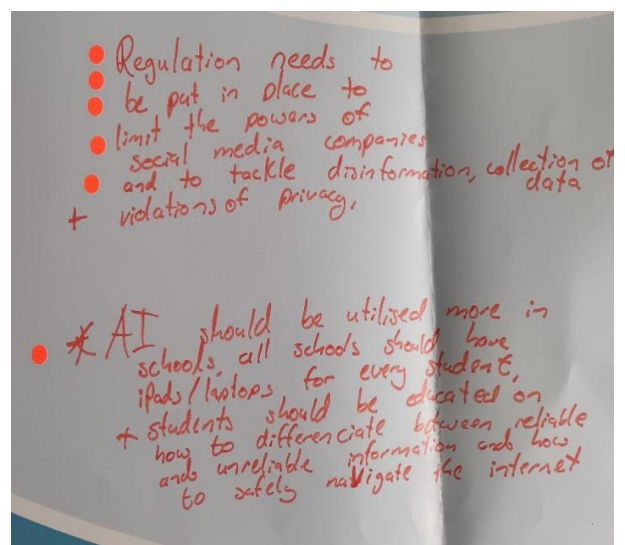 Regulation needs to
be put in place to
limit the powers of
social media companies
and to tackle disinformation, collection of
data
+ violations of privacy.
* AI should be utilised more in
schools, all schools should have
iPads/laptops for every student,
+ students should be educated on
how to differenciate between reliable
and unreliable information and how
to safely navigate the internet